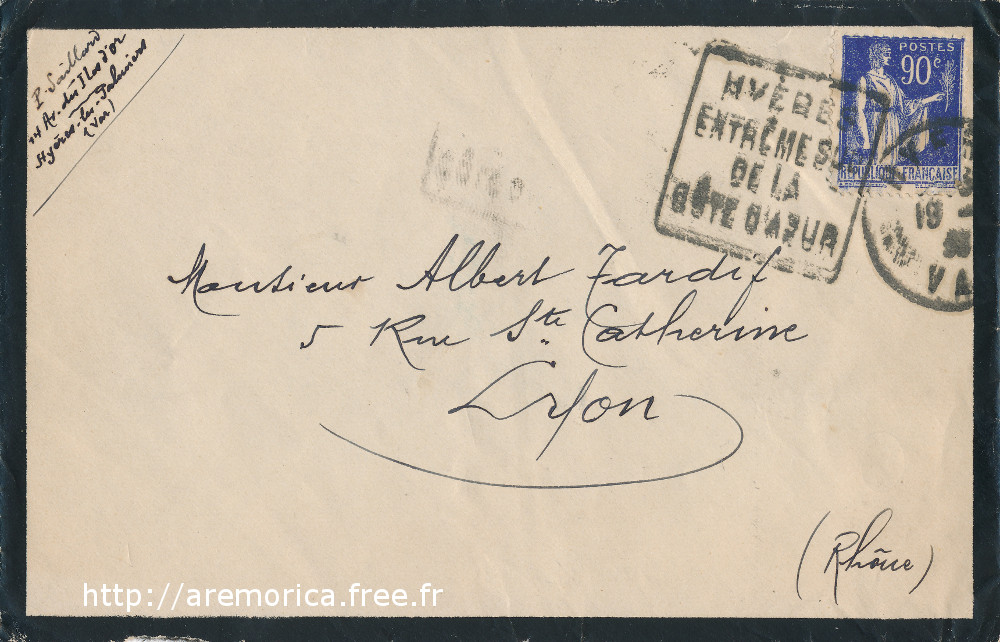 P. Saillard
Av. des Iles d'or
Hyères-les-Palmiers
(Var)
HYÈRES
EXTRÊME SUD
DE LA
CÔTE D'AZUR
POSTES
90c
RÉPUBLIQUE FRANÇAISE
19
VA
Monsieur Albert Tardif
5 Rue Ste Catherine
Lyon
(Rhône)
http://aremorica.free.fr